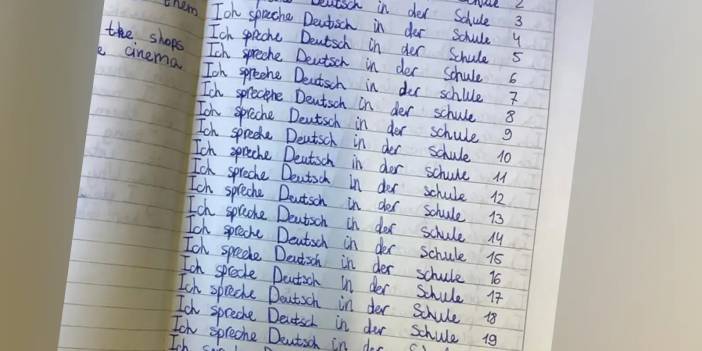 them
the shops
cinema
Deutsch in der Schule 2
Ich spreche Deutsch in der Schule 3
Ich spreche Deutsch in der Schule 4
Ich spreche Deutsch in der Schule 5
Ich spreche Deutsch in der Schule 6
Ich spreche Deutsch in der schule 7
Ich spreche Deutsch in der schule 8
Ich spreche Deutsch in der schule 9
Ich spreche Deutsch in der Schule 10
Ich spreche Deutsch in der schule 11
Ich spreche Deutsch in der schule 12
Ich spreche Deutsch in der Schule 13
Ich spreche Deutsch in der Schule 14
Ich spreche Deutsch in der Schule 15
Ich spreche Deutsch in der Schule 16
Ich spreche Deutsch in der Schule 17
Ich spreche Deutsch in der Schule 18
Ich spreche Deutsch in der Schule 19
Ich Deutsch in der